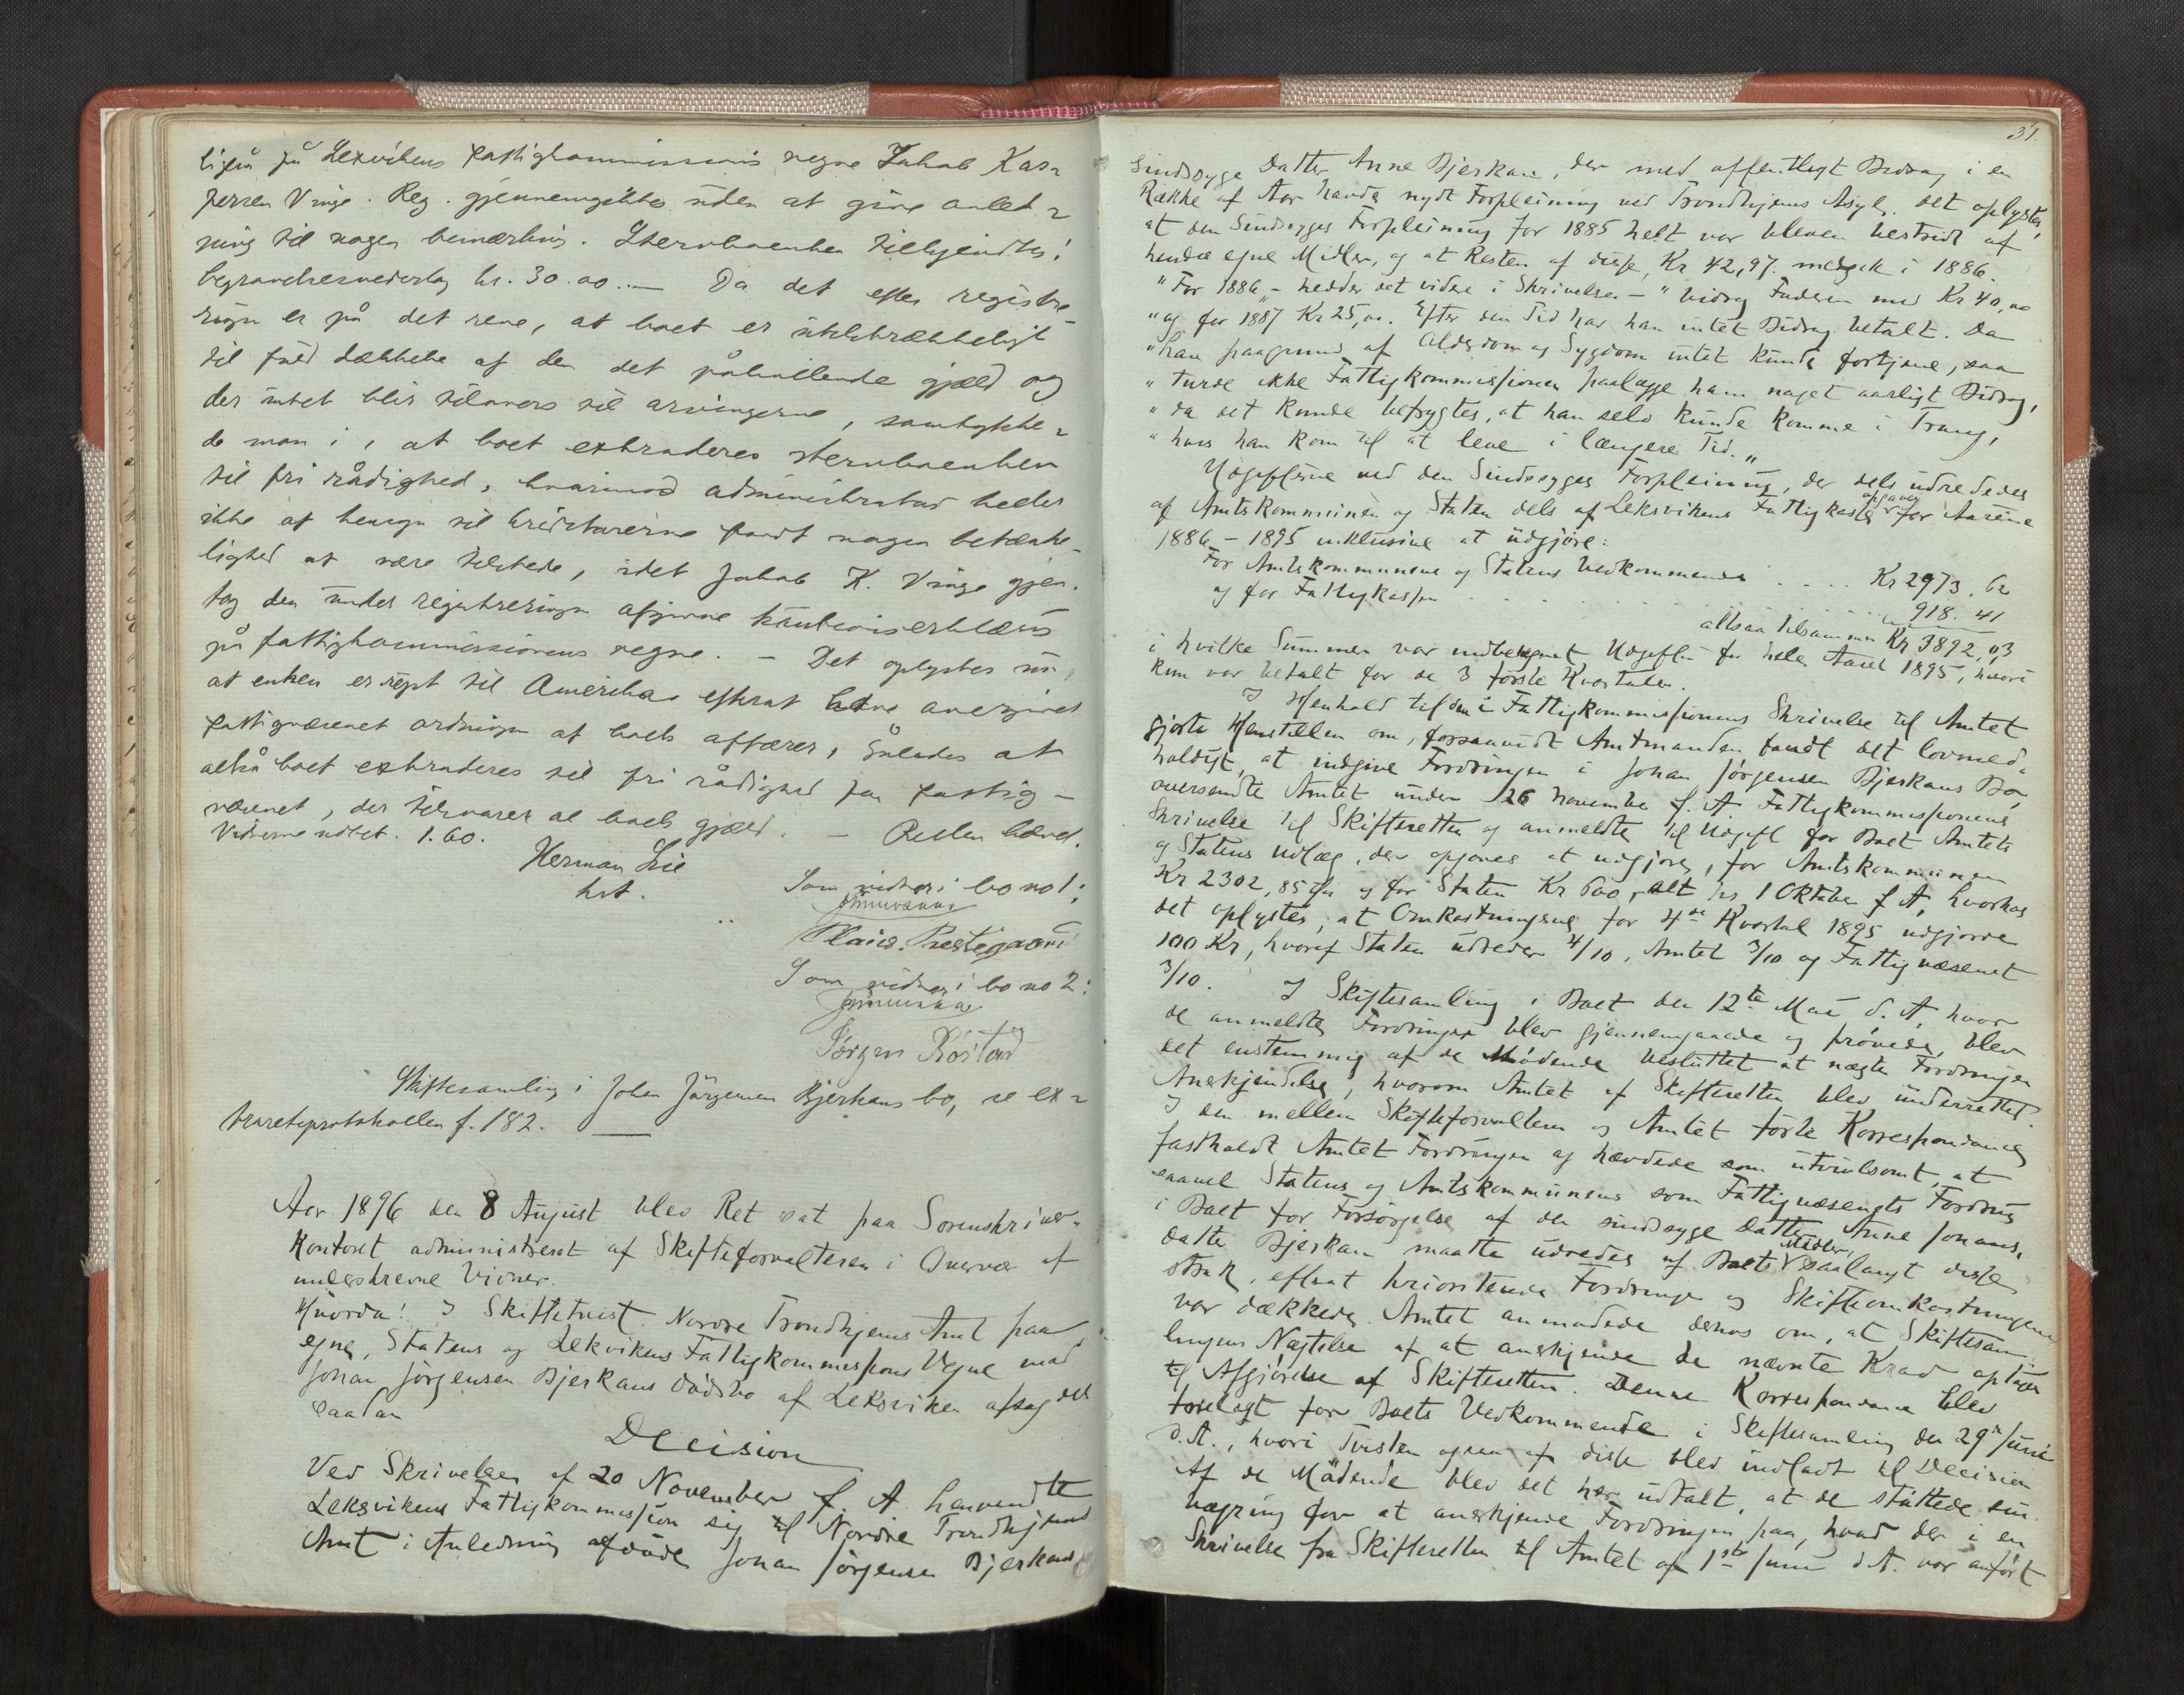 ligeså på Lexvikens fattigkommissions vegne Jakob Kas-
persen Vinge. Reg. gjennemgikkes uden at give anled-
ning til nogen bemærkning. Stervboenken tilkjendtes i
begravelsesvederlag kr. 30.00. — Da det efter registre-
ringen er på det rene, at boet er utilstrækkeligt
til fuld dækkelse af den det påhvilende gjæld og
der intet blir tilovers til arvingerne, samtykke-
de man i, at boet extraderes stervboenken
til fri rådighed, hvorimod administrator heller
ikke af hensyn til kreditorerne fandt nogen betænke-
lighed at være tilstede, idet Jakob K. Vinge gjen-
tog den under registreringen afgivne kautionserklæring
på fattigkommissionens vegne. — Det oplystes nu,
at enken er rejst til Amerika efterat have overgivet
fattigvæsenet ordningen af boets affærer, således at
altså boet extraderes til fri rådighed for fattig-
væsenet, der tilsvarer al boets gjæld. — Retten hævet.
Vidnerne udbet. 1.60.
Herman Lie
kst.
Som vidner i bo no 1:
Klaus Prestegaard
Som vidner i bo no 2:
Jørgen Røstad
Skiftesamling i Johan Jörgensen Bjerkans bo, se ex-
traretsprotokollen f. 182.
Aar 1896 den 8 August blev Ret sat paa Sorenskriver-
kontoret administreret af Skifteforvalteren i Overvær af
underskrevne Vidner.
Hvorda! I Skiftetvist Nordre Trondhjems Amt paa
egne, Statens og Lekvikens Fattigkommissions Vegne mod
Johan Jörgensen Bjerkans Dödsbo af Leksviken afsagdes
saadan
Decision
Ved Skrivelse af 20 November f. A. henvendte
Leksvikens Fattigkommission sig til Nordre Trondhjems
Amt i Anledning afdøde Johan Jörgensen Bjerkans
31.
sindssyge Datter Anne Bjerkan, der med offentligt Bidrag i en
Række af Aar havde nydt Forpleining ved Trondhjems Asyl. Det oplystes,
at den Sindssyges Forpleining for 1885 helt var bleven bestridt af
hendes egne Midler, og at Resten af disse, Kr 42,97. medgik i 1886.
"For 1886" - hedder det videre i Skrivelsen - "bidrog Faderen med Kr 40,00
"og for 1887 Kr 25,00. Efter den Tid har han intet Bidrag betalt. Da
"han paagrund af Alderdom og Sygdom intet kunde fortjene, saa
"turde ikke Fattigkommissionen paalægge ham noget aarligt Bidrag,
"da det kunde befrygtes, at han selv kunde komme i Trang,
"hvis han kom til at leve i længere Tid."
Udgifterne ved den Sindssyges Forpleining, der dels udrededes
af Amtskommunen og Staten dels af Leksvikens Fattigkasse opgaves for Aarene
1886 - 1895 inklusive at udgjöre:
For Amtskommunens og Statens Vedkommende . . . . Kr 2973. 62
og for Fattigkassen . . . . . . 918. 41
altsaa tilsammen Kr 3892,03
i hvilke Summer var indberegnet Udgiften for hele Aaret 1895, hvori
kun var betalt for de 3 første Kvartaler.
I Henhold til den i Fattigkommissionens Skrivelse til Amtet
gjorte Henstillen om, forsaavidt Amtmanden fandt det lovmed-
holdigt, at indgive Fordringen i Johan Jörgensen Bjerkans Bo,
oversendte Amtet under 26 November f. A. Fattigkommissionens
Skrivelse til Skifteretten og anmeldte til Udgift for Boet Amtets
og Statens Udlæg, der opgaves at udgjöre, for Amtskommunen
Kr 2302,85 og for Staten Kr 600, alt pr. 1 Oktober f. A, hvorhos
det oplystes, at Omkostningerne for 4de Kvartal 1895 udgjorde
100 Kr, hvoraf Staten udreder 4/10, Amtet 3/10 og Fattigvæsenet
3/10. I Skiftesamling i Boet den 12te Mai d. A, hvor
de anmeldte Fordringer blev gjennemgaaede og prøvede, blev
det enstemmig af de Mødende besluttet at nægte Fordringen
Anerkjendelse, hvorom Amtet af Skifteretten blev underrettet.
I den mellem Skifteforvalteren og Amtet förte Korrespondance
fastholdt Amtet Fordringen og hævdede som utvivlsomt, at
saavel Statens og Amtskommunens som Fattigvæsenets Fordring
i Boet for Forsörgelse af den sindssyge Datter Anne Johans-
datter Bjerkan maatte udredes af Boets Midler, saalangt disse
strak, efterat prioriterede Fordringer og Skifteomkostningerne
var dækkede. Amtet anmodede derhos om, at Skiftesam-
lingens Nægtelse af at anerkjende de nævnte Krav optages
til Afgjörelse af Skifteretten. Denne Korrespondance blev
forelagt for Boets Vedkommende i Skiftesamling den 29de Juni
d. A., hvori Tvisten ogsaa af disse blev indladt til Decision.
Af de Mødende blev det her udtalt, at de støttede sin
Vægring for at anerkjende Fordringen paa, hvad der i en
Skrivelse fra Skifteretten til Amtet af 1ste Juni d. A. var anført